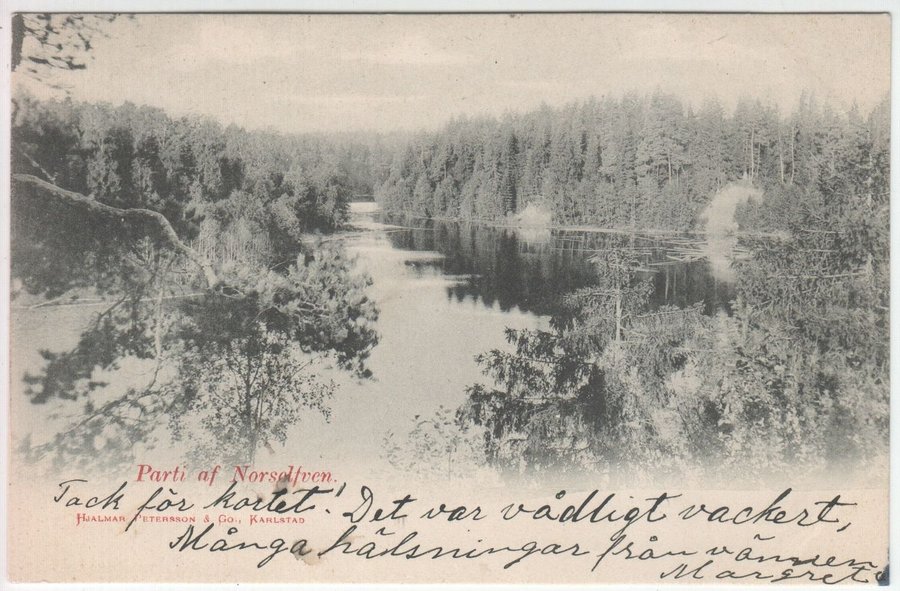 Parti af Norselfven.
Tack för kortet! Det var vådligt vackert,
Hjalmar Petersson & Co., Karlstad
Många hälsningar från vännen
Margret